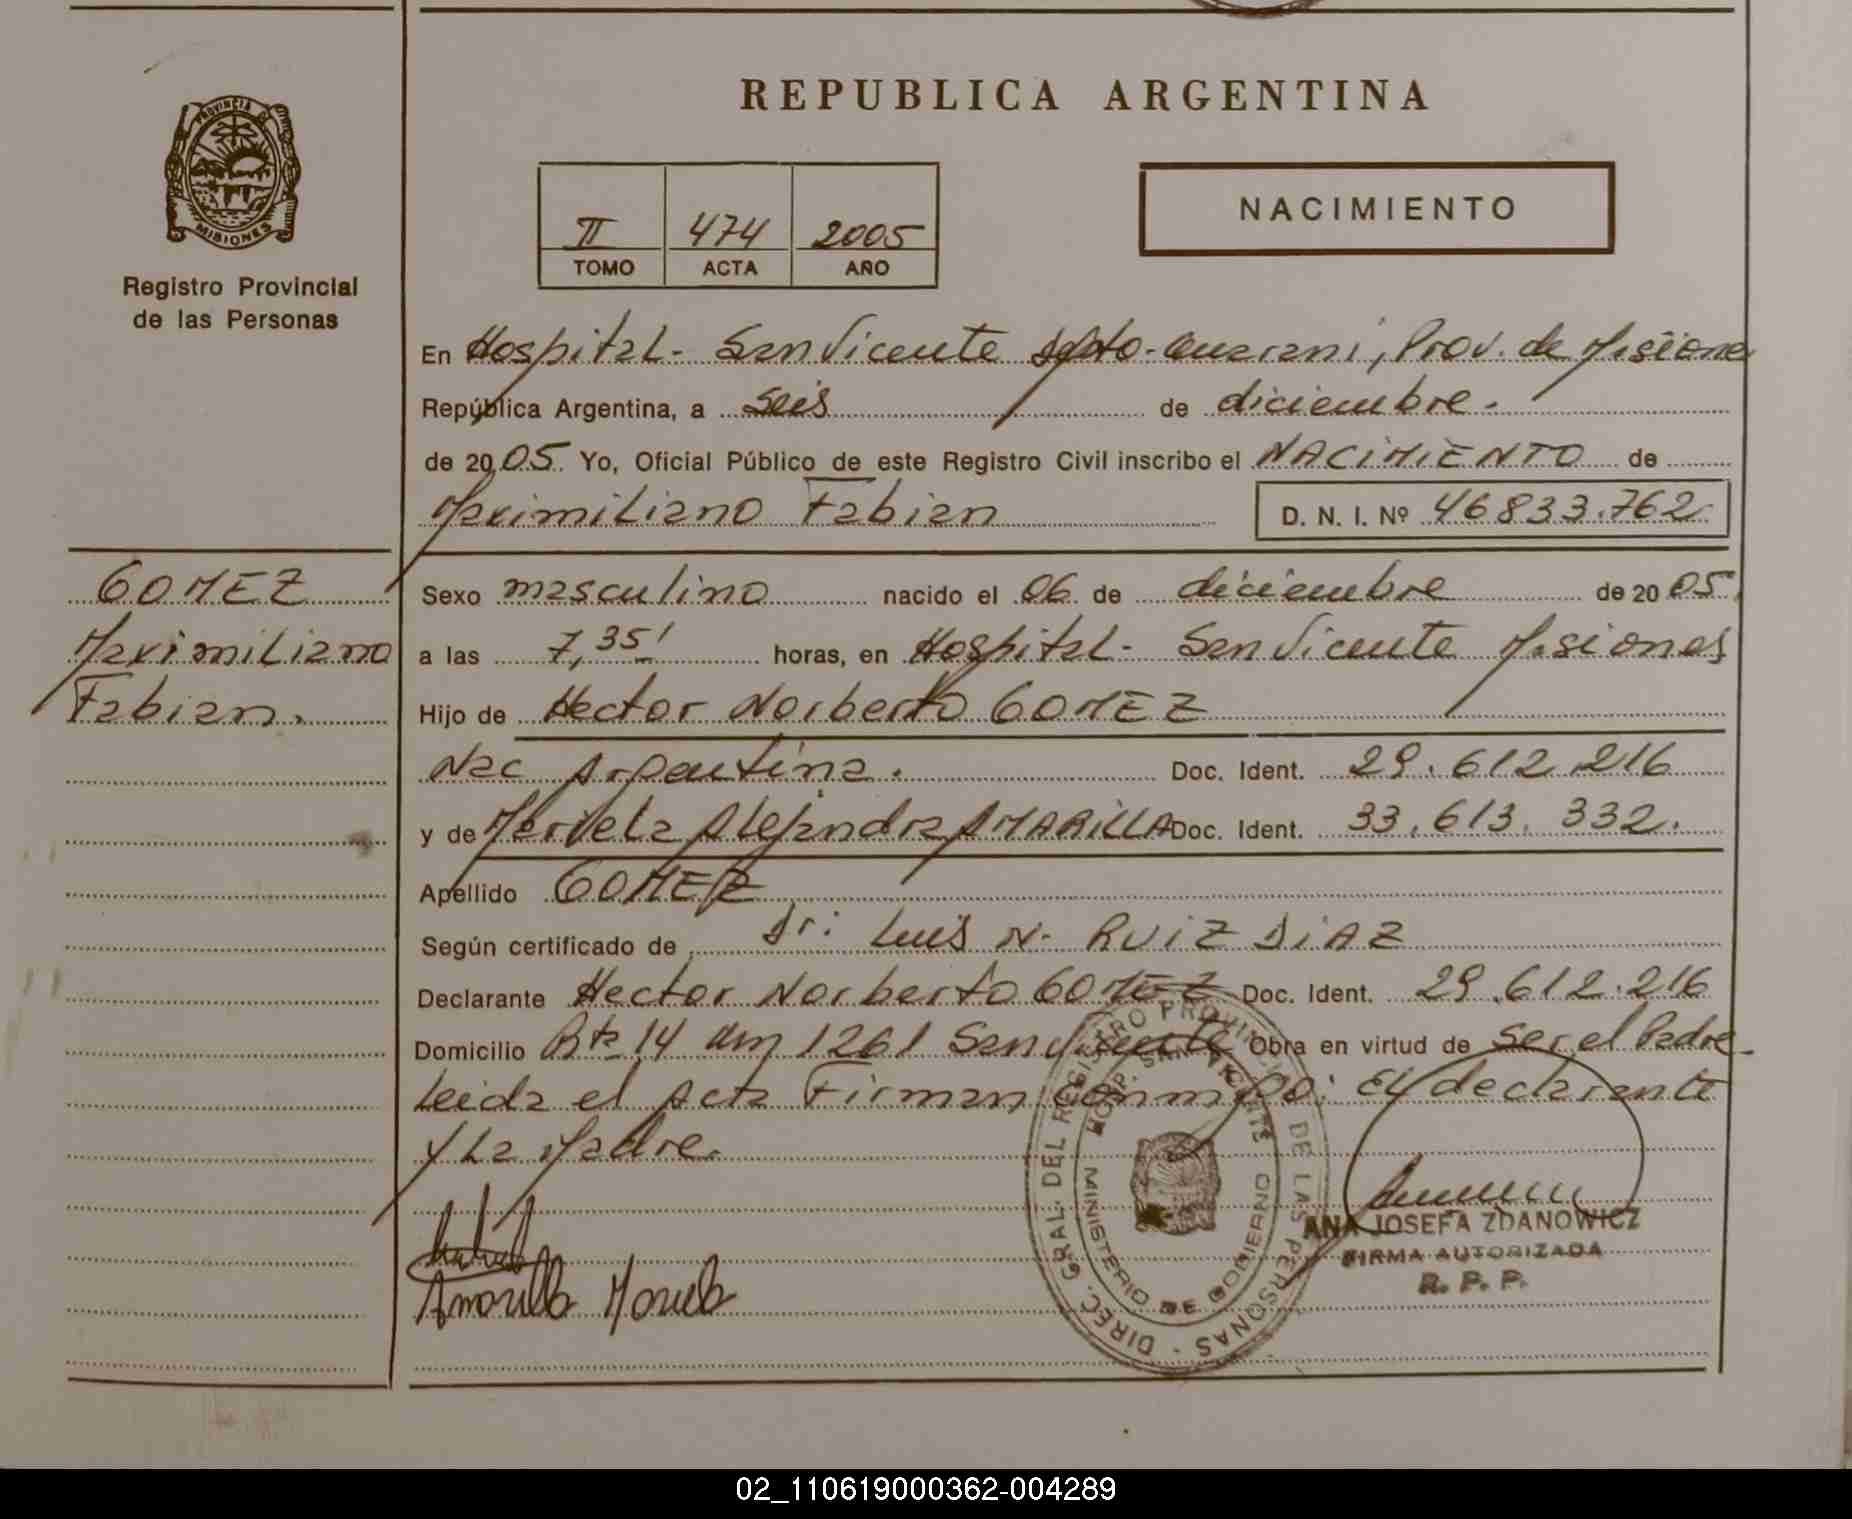 REPUBLICA ARGENTINA
PROVINCIA DE
MISIONES
Registro Provincial
de las Personas
II 474 2005
TOMO ACTA AÑO
NACIMIENTO
En Hospital - San Vicente Dpto - Guarani, Prov. de Misiones
República Argentina, a seis de diciembre.
de 2005. Yo, Oficial Público de este Registro Civil inscribo el NACIMIENTO de
Maximiliano Fabian D. N. I. Nº 46833.762
GOMEZ
Maximiliano
Fabian.
Sexo masculino nacido el 06 de diciembre de 2005,
a las 7,35' horas, en Hospital - San Vicente Misiones
Hijo de Hector Norberto GOMEZ
Nac Argentina. Doc. Ident. 29.612.216
y de Mariela Alejandra AMARILLA Doc. Ident. 33.613.332.
Apellido GOMEZ
Según certificado de Dr: Luis N. RUIZ DIAZ
Declarante Hector Norberto GOMEZ Doc. Ident. 29.612.216
Domicilio Rta 14 km 1261 San Vicente Obra en virtud de Ser el Padre -
Leida el Acta Firman conmigo: El declarante
y La Madre.
Amarilla Mariela
DIREC. GRAL. DEL REGISTRO PROVINCIAL DE LAS PERSONAS -
HOSP. SAN VICENTE
MINISTERIO DE GOBIERNO
ANA JOSEFA ZDANOWICZ
FIRMA AUTORIZADA
R. P. P.
02_110619000362-004289